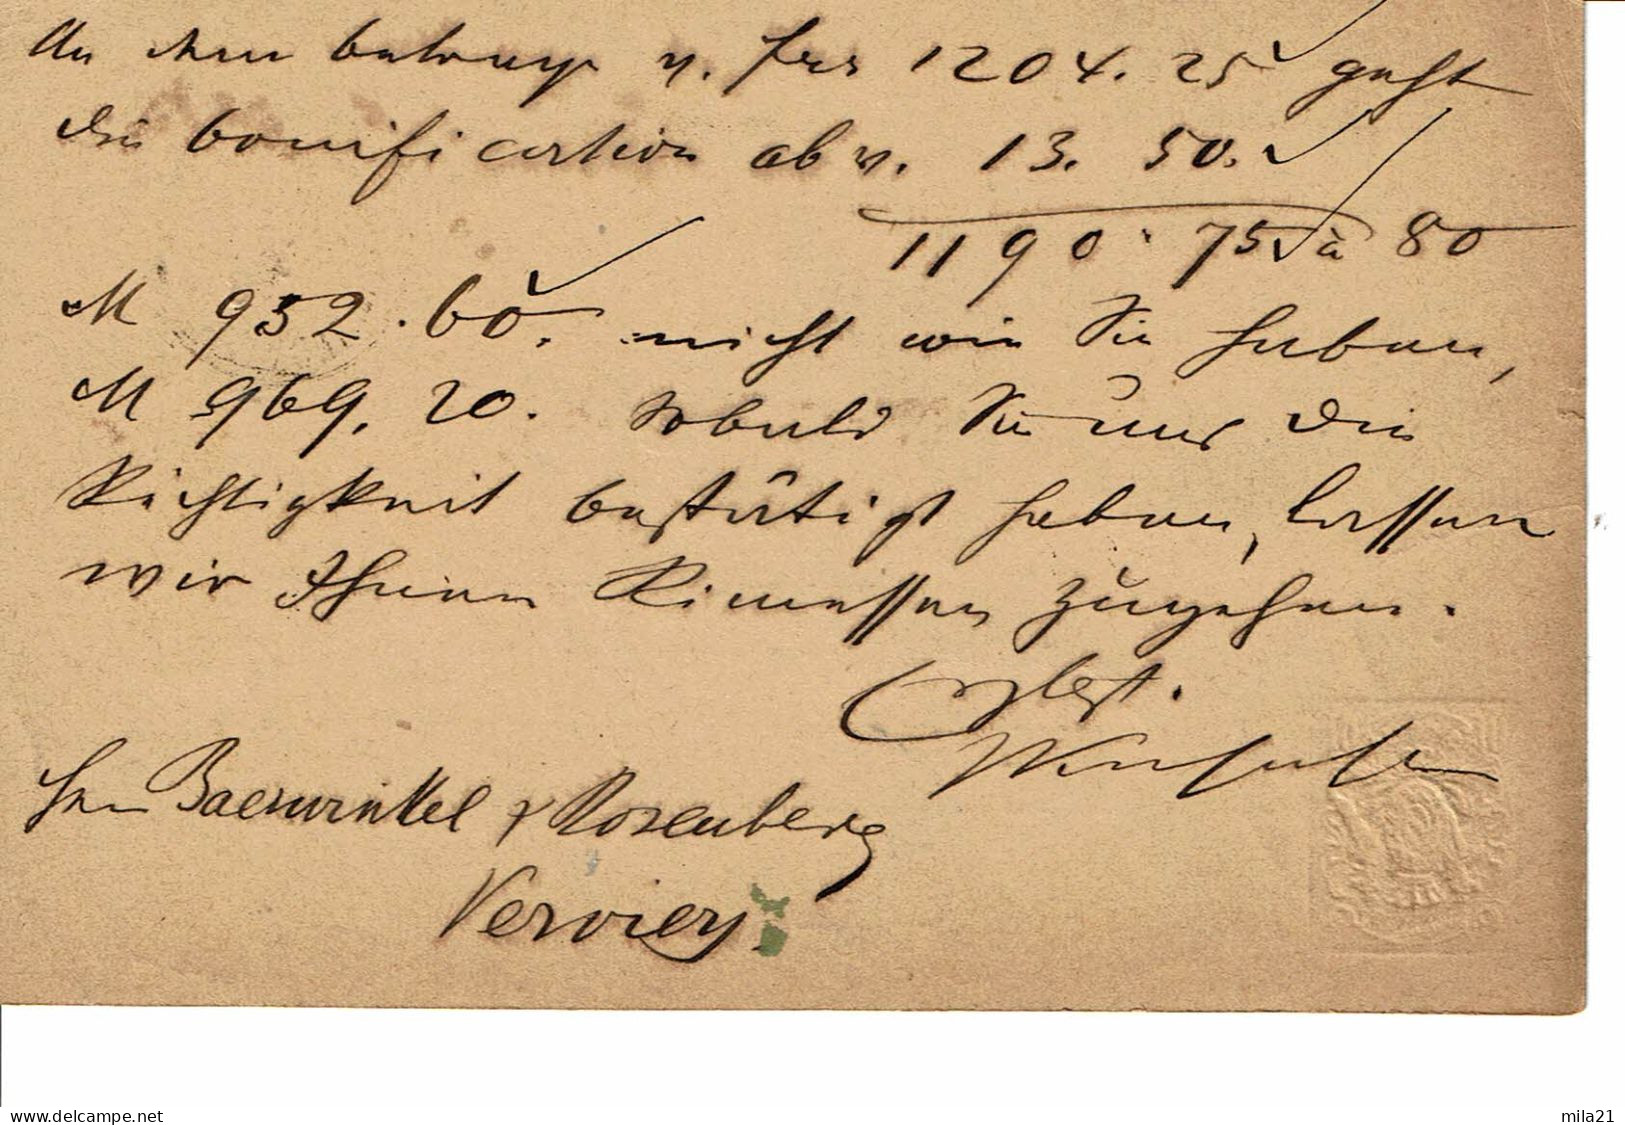 An dem betrage v. frs 1204. 25 geht
die bonification ab v. 13. 50.
1190. 75 à 80
M 952. 60. nicht wie Sie haben,
M 969. 20. sobald Sie uns die
Richtigkeit bestätigt haben, lassen
wir Ihnen Rimessen zugehen.
Ergbst.
Hrn Baerwinkel & Rosenberg
Verviers.
www.delcampe.net
mila21